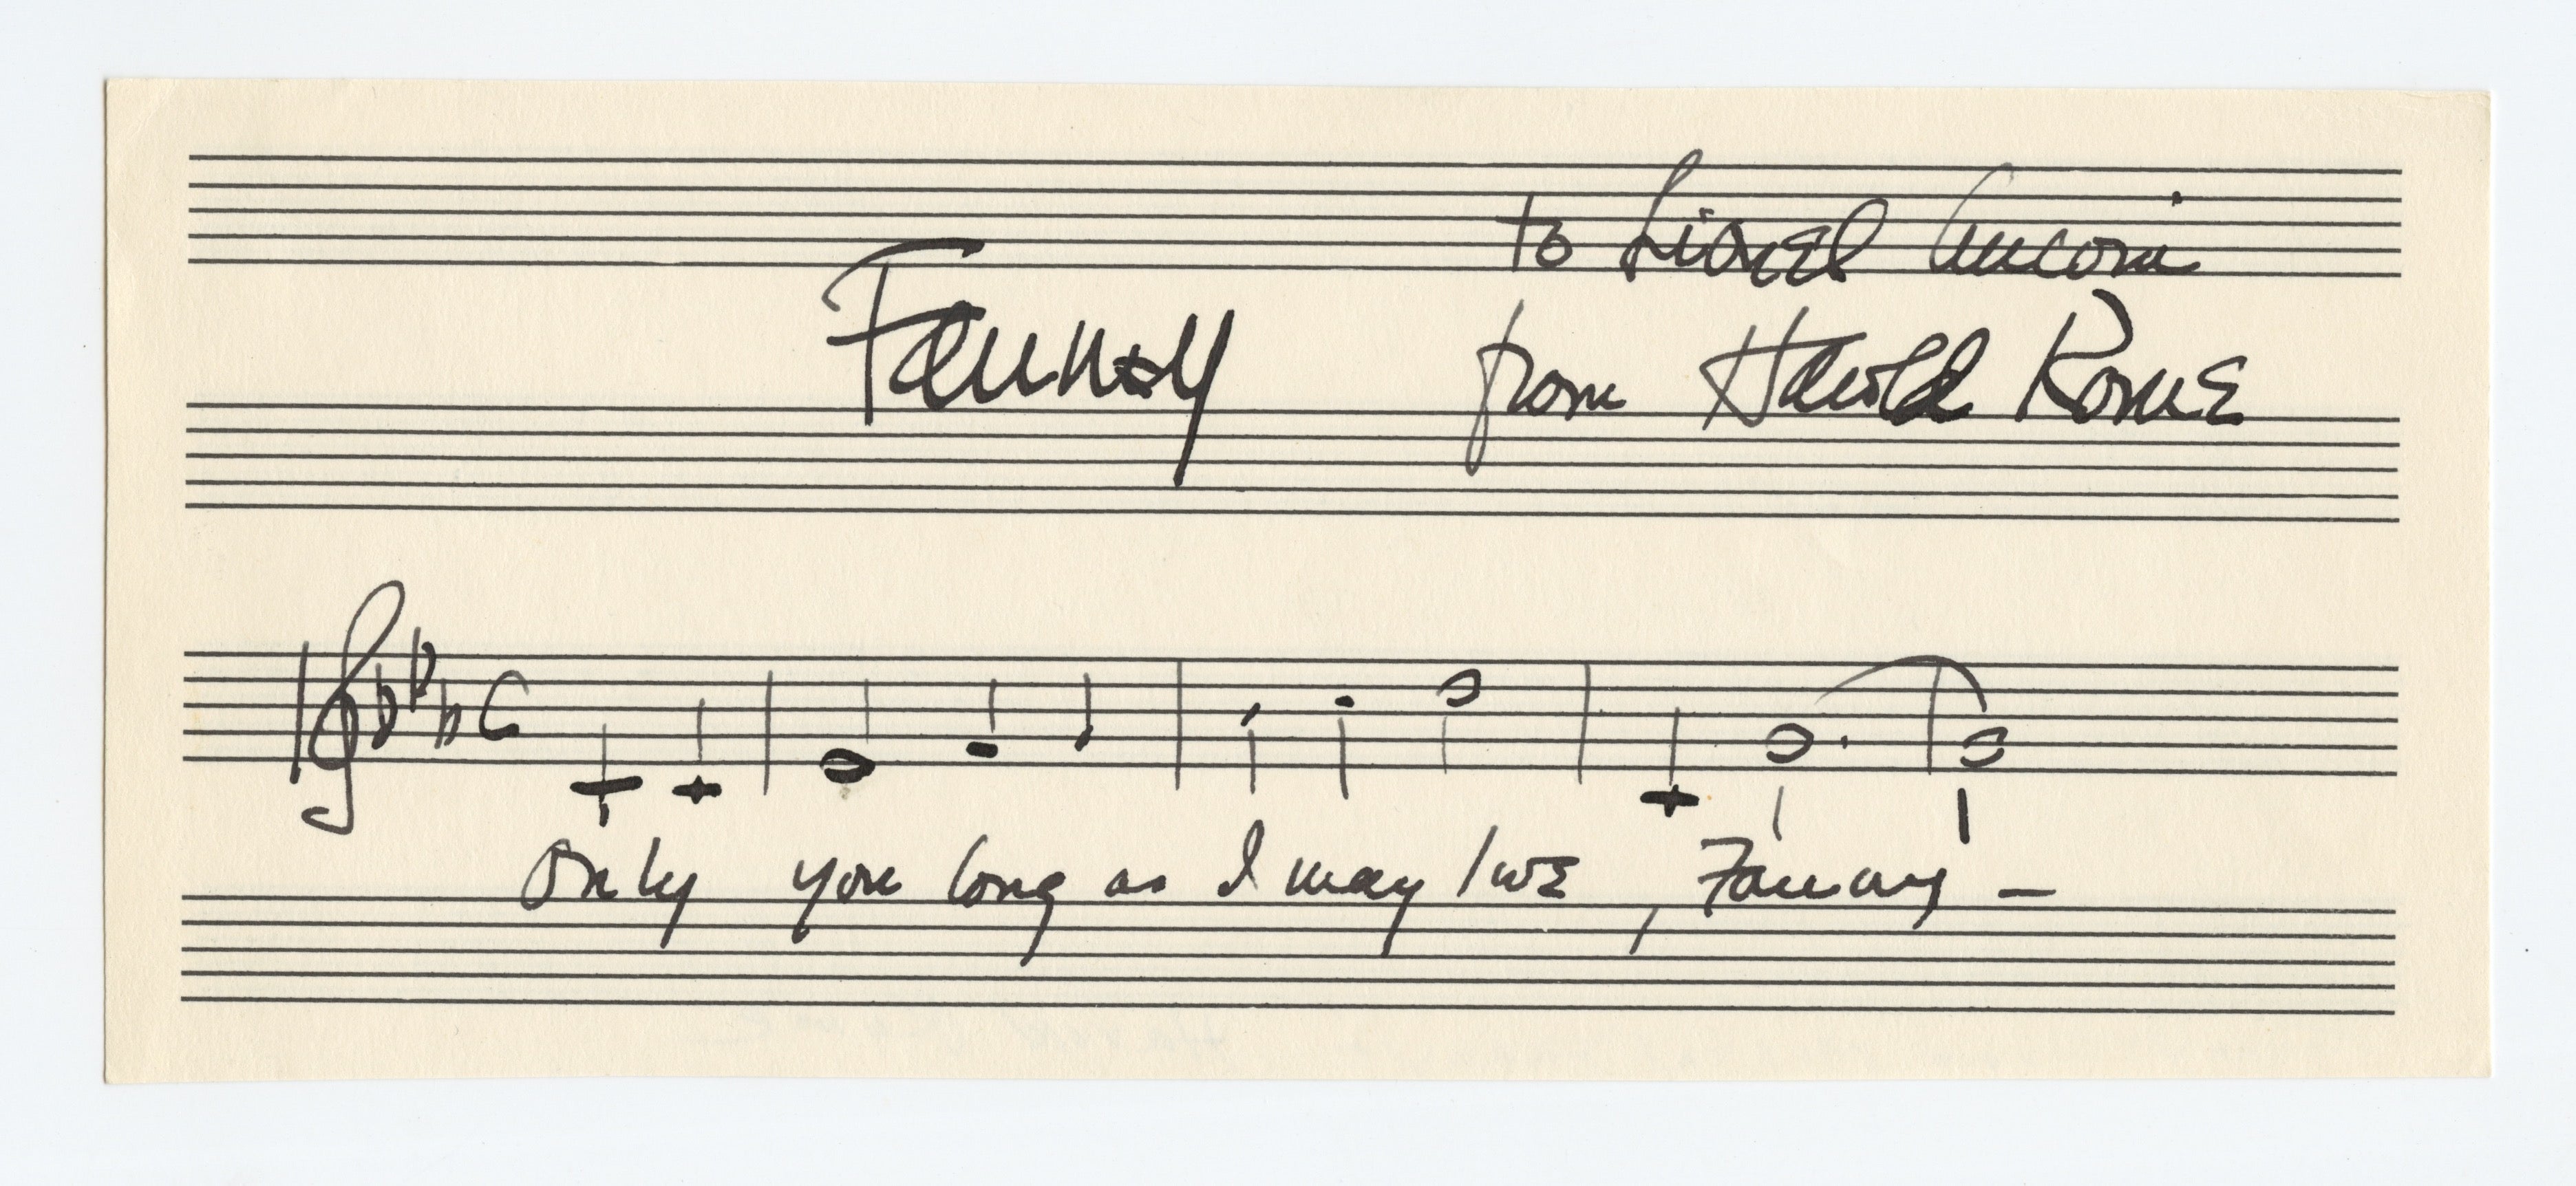 to Lionel Ancona
from Harold Rome
Fanny
Only you long as I may live, Fanny –